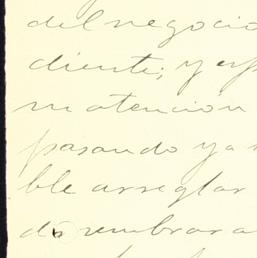 del negocio
diente; y esp
m atencion
pasando ya
ble arreglar
do nombrar a